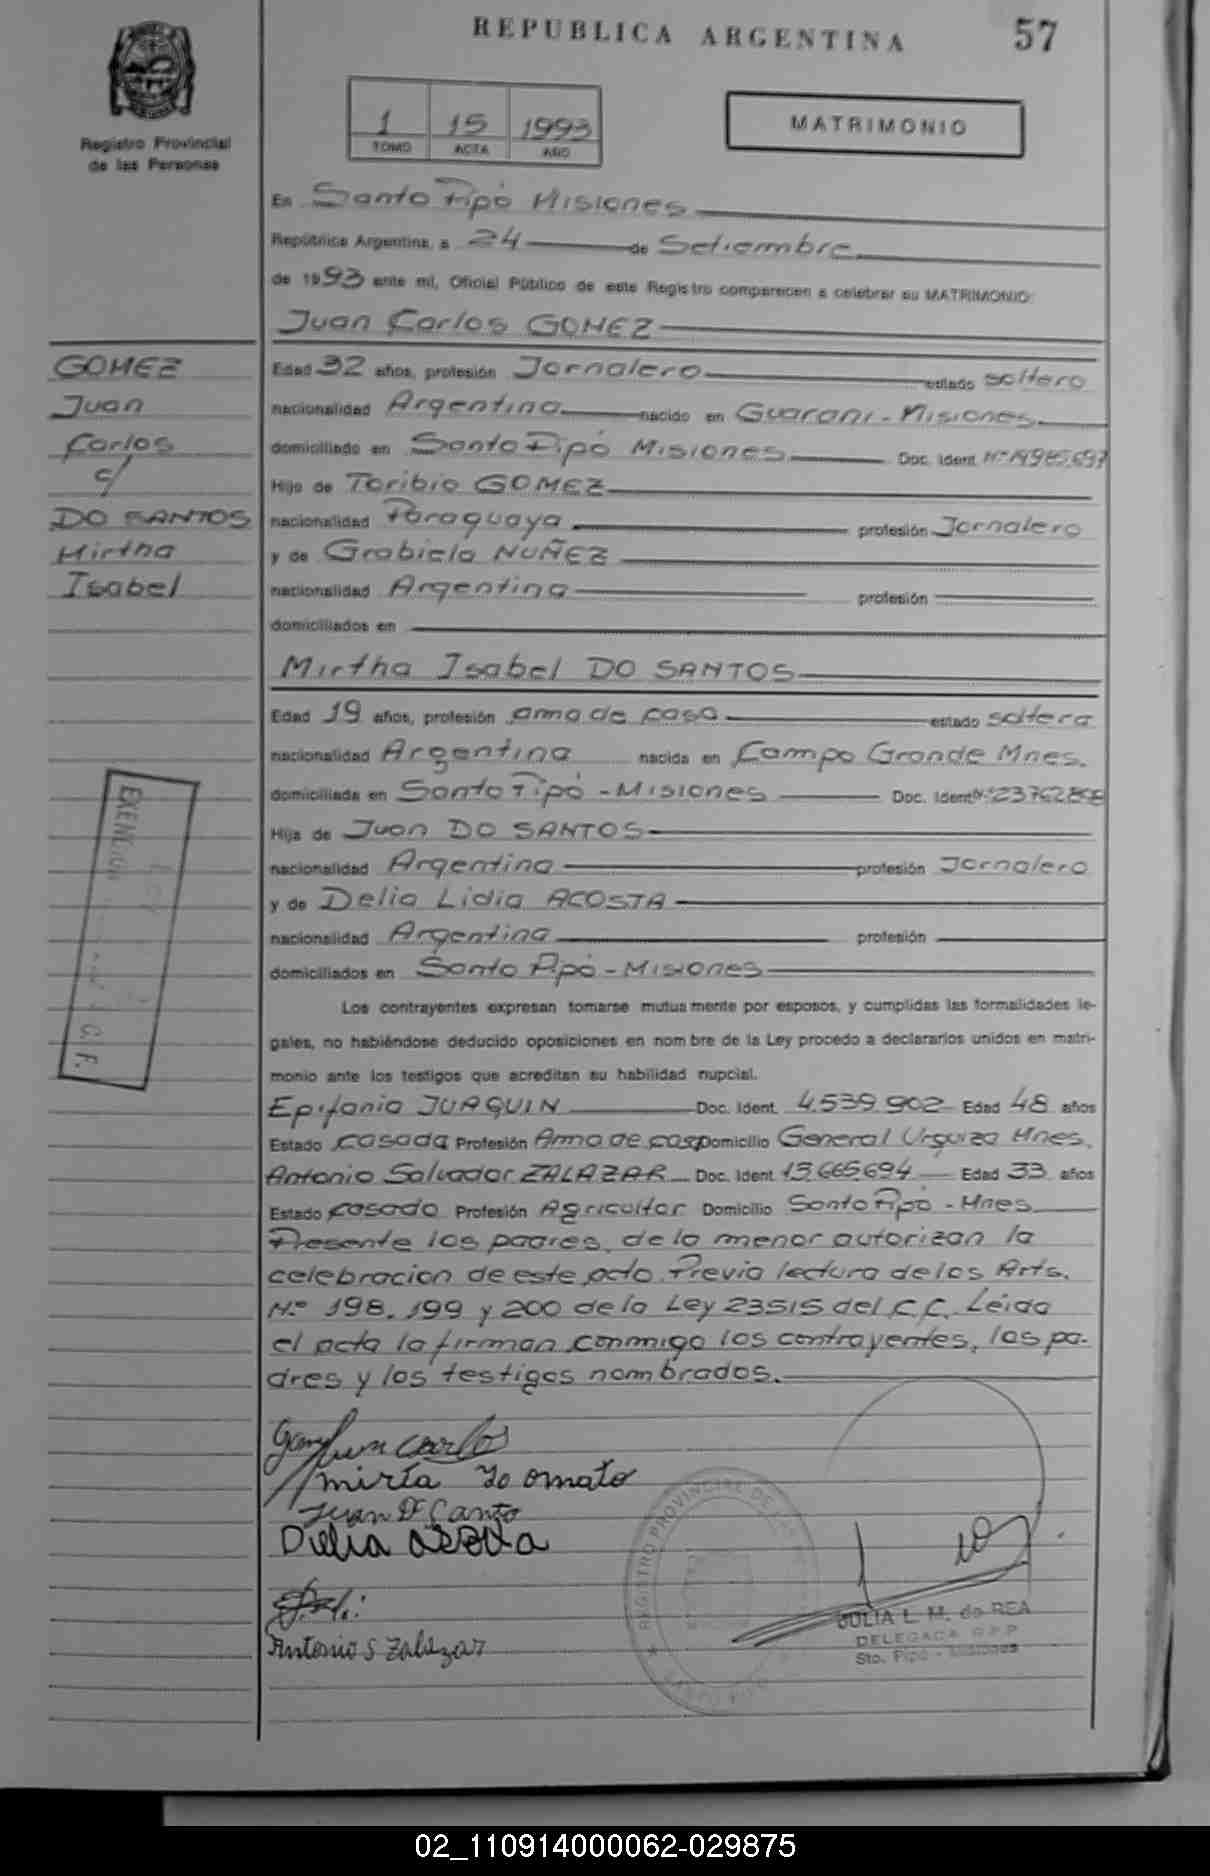 REPUBLICA ARGENTINA
57
Registro Provincial
de las Personas
1 15 1993
TOMO ACTA AÑO
MATRIMONIO
En Santo Pipó Misiones
República Argentina, a 24 de Setiembre
de 1993 ante mi, Oficial Público de este Registro comparecen a celebrar su MATRIMONIO:
Juan Carlos GOMEZ
GOMEZ
Juan
Carlos
c/
DO SANTOS
Mirtha
Isabel
Edad 32 años, profesión Jornalero estado soltero
nacionalidad Argentina nacido en Guarani - Misiones
domiciliado en Santo Pipó Misiones Doc. Ident. Nº 14.985.697
Hijo de Toribio GOMEZ
nacionalidad Paraguaya profesión Jornalero
y de Grabiela NUÑEZ
nacionalidad Argentina profesión
domiciliados en
Mirtha Isabel DO SANTOS
Edad 19 años, profesión ama de casa estado soltera
nacionalidad Argentina nacida en Campo Grande Mnes.
domiciliada en Santo Pipó - Misiones Doc. Ident Nº 23762898
Hija de Juan DO SANTOS
nacionalidad Argentina profesión Jornalero
y de Delia Lidia ACOSTA
nacionalidad Argentina profesión
domiciliados en Santo Pipó - Misiones
EXENCION
C. F.
Los contrayentes expresan tomarse mutuamente por esposos, y cumplidas las formalidades le-
gales, no habiéndose deducido oposiciones en nombre de la Ley procedo a declararlos unidos en matri-
monio ante los testigos que acreditan su habilidad nupcial.
Epifania JUAQUIN Doc. Ident. 4.539.902 Edad 48 años
Estado casada Profesión Ama de casa Domicilio General Urquiza Mnes.
Antonio Salvador ZALAZAR Doc. Ident 13.665.694 Edad 33 años
Estado casado Profesión Agricultor Domicilio Santo Pipó - Mnes
Presente los padres, de la menor autorizan la
celebracion de este acto. Previa lectura de los Arts.
N.º 198, 199 y 200 de la Ley 23515 del C.C. Leida
el acta la firman conmigo los contrayentes, los pa-
dres y los testigos nombrados.
Juan Carlos
Juan D Santo
Delia
Antonio S Zalazar
REGISTRO PROVINCIAL DE LAS
SANTO PIPO
JULIA L. M. de REA
DELEGADA R.P.P
Sto. Pipó - Misiones
02_110914000062-029875